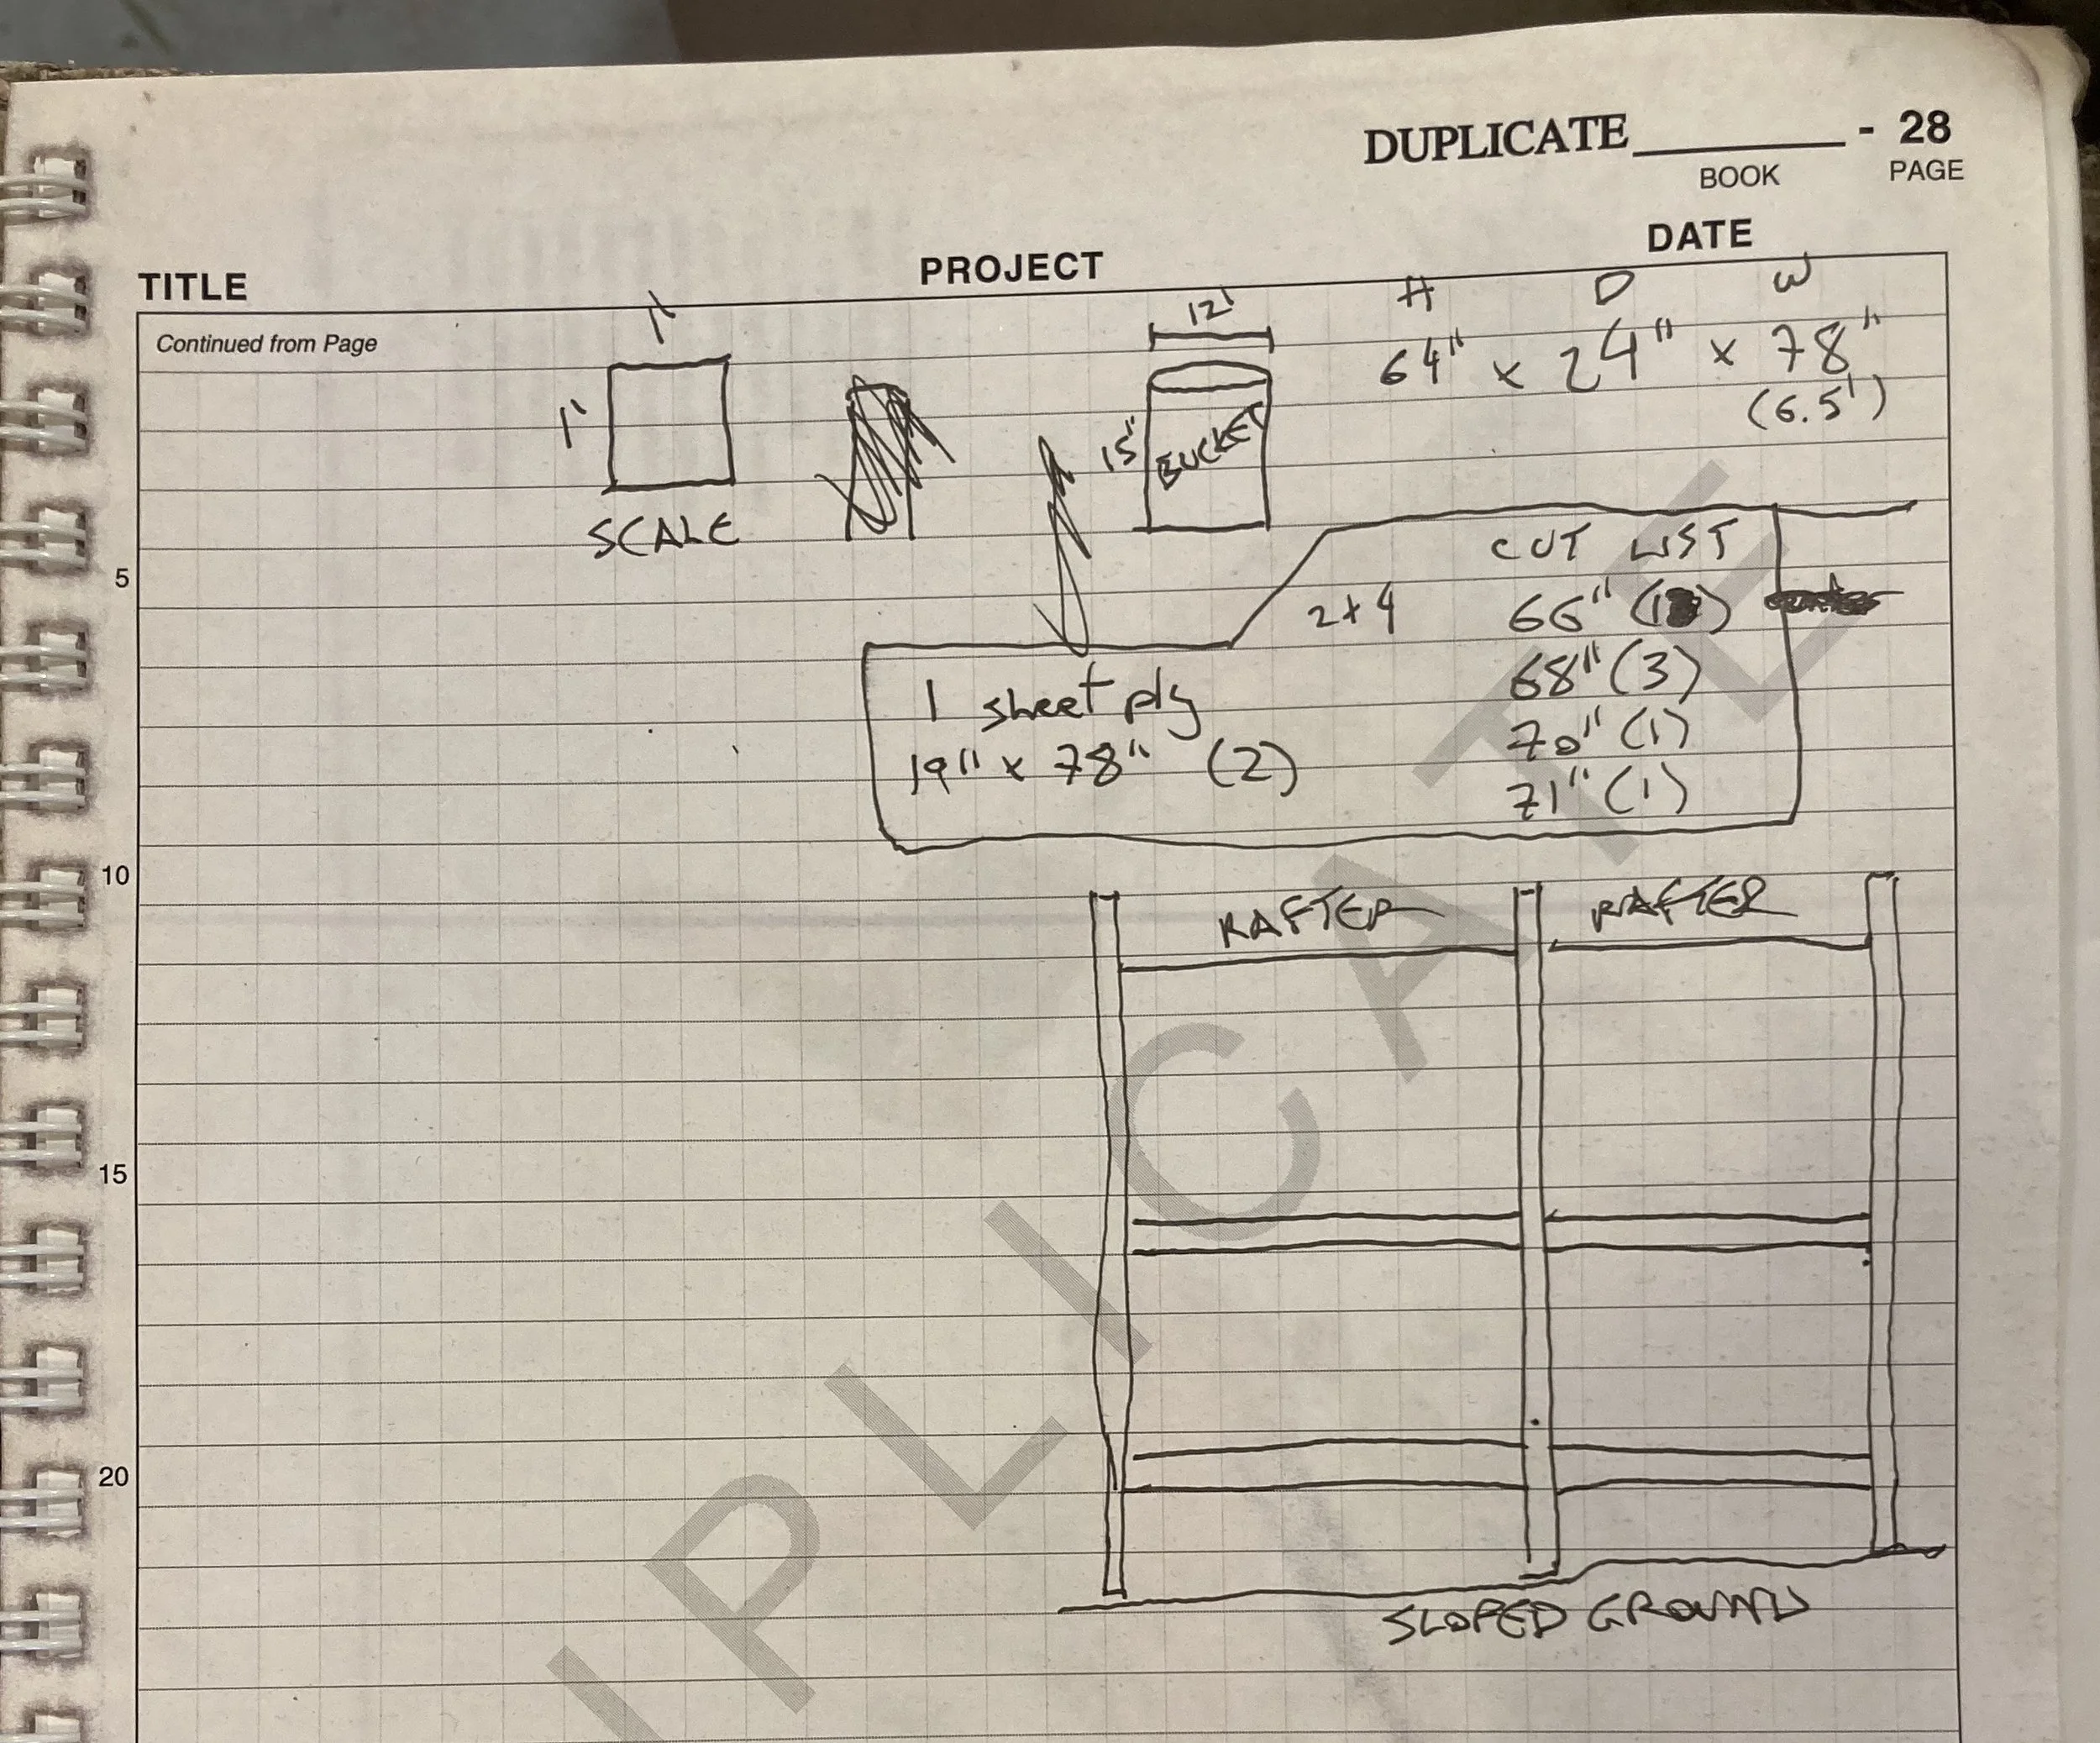 DUPLICATE________ - 28
BOOK PAGE
TITLE PROJECT DATE
Continued from Page
1'
1'
SCALE
12'
15"
BUCKET
H D W
64" x 24" x 78"
(6.5')
CUT LIST
2x4 66" (1
68" (3)
70" (1)
71" (1)
1 sheet ply
19" x 78" (2)
5
10
15
20
RAFTER RAFTER
SLOPED GROUND
PLICATE